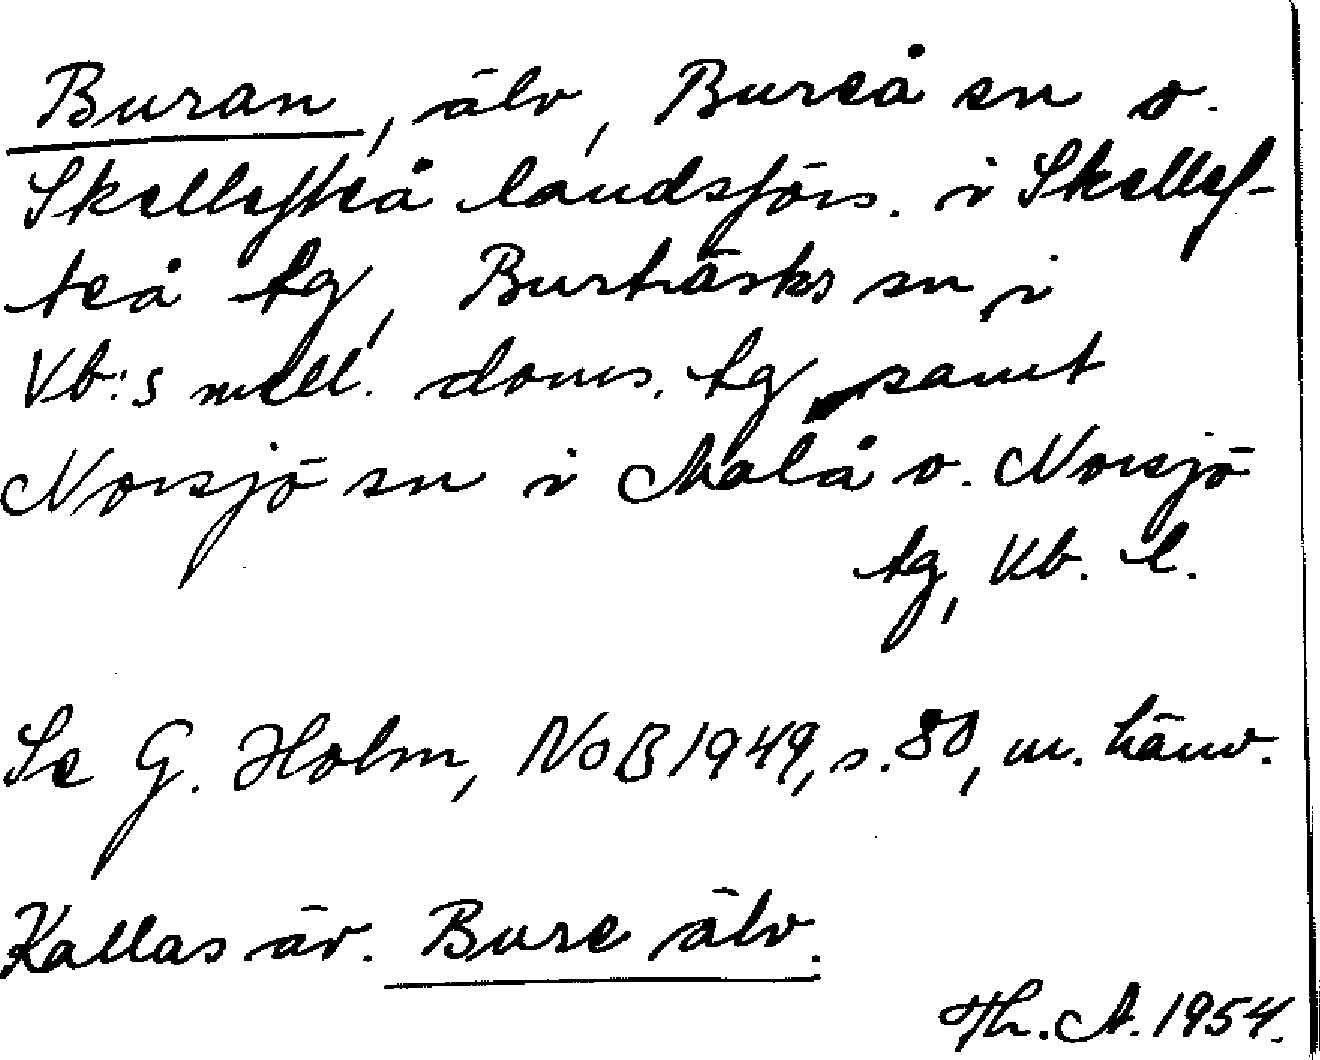 Buran, älv, Bureå sn o.
Skellefteå landsförs. i Skellef-
teå tg, Burträsks sn i
Vb:s mell. doms. tg samt
Norsjö sn i Malå o. Norsjö
tg, Vb. l.
Se G. Holm, NoB 1949, s. 80, m. hänv.
Kallas äv. Bure älv.
Th. A. 1954.